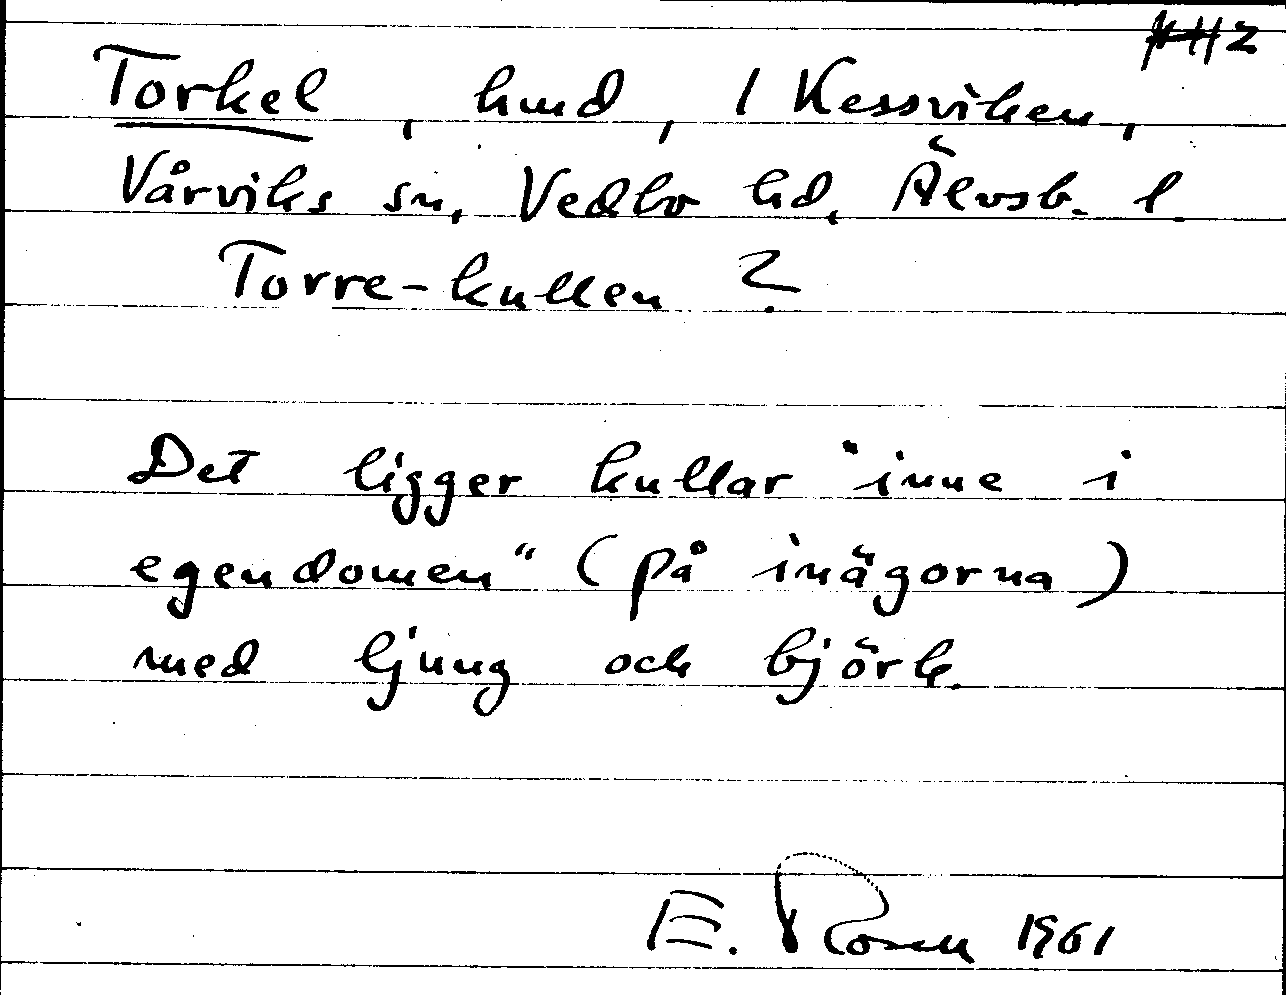 Torkel, hmd, 1 Kessviken,
Vårviks sn, Vedbo hd, Älvsb. l.
Torre-kullen ?
Det ligger kullar "inne i
egendomen" (på inägorna)
med ljung och björk.
E. Rosen 1961